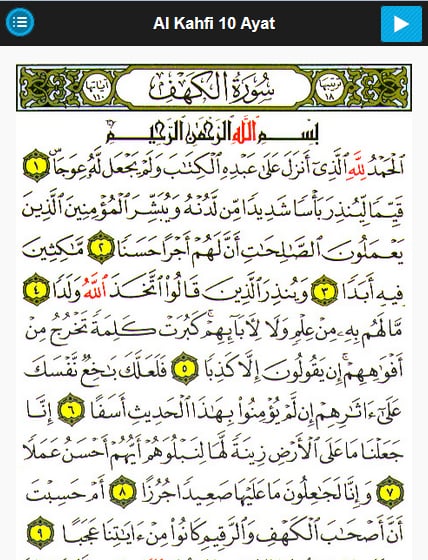 Al Kahfi 10 Ayat
سُورَةُ الْكَهْفِ
بِسْمِ اللَّهِ الرَّحْمَٰنِ الرَّحِيمِ
الْحَمْدُ لِلَّهِ الَّذِي أَنزَلَ عَلَىٰ عَبْدِهِ الْكِتَابَ وَلَمْ يَجْعَل لَّهُ عِوَجًا ١
قَيِّمًا لِّيُنذِرَ بَأْسًا شَدِيدًا مِّن لَّدُنْهُ وَيُبَشِّرَ الْمُؤْمِنِينَ الَّذِينَ
يَعْمَلُونَ الصَّالِحَاتِ أَنَّ لَهُمْ أَجْرًا حَسَنًا ٢ مَّاكِثِينَ
فِيهِ أَبَدًا ٣ وَيُنذِرَ الَّذِينَ قَالُوا اتَّخَذَ اللَّهُ وَلَدًا ٤
مَّا لَهُم بِهِ مِنْ عِلْمٍ وَلَا لِآبَائِهِمْ كَبُرَتْ كَلِمَةً تَخْرُجُ مِنْ
أَفْوَاهِهِمْ إِن يَقُولُونَ إِلَّا كَذِبًا ٥ فَلَعَلَّكَ بَاخِعٌ نَّفْسَكَ
عَلَىٰ ءَاثَارِهِمْ إِن لَّمْ يُؤْمِنُوا بِهَٰذَا الْحَدِيثِ أَسَفًا ٦ إِنَّا
جَعَلْنَا مَا عَلَى الْأَرْضِ زِينَةً لَّهَا لِنَبْلُوَهُمْ أَيُّهُمْ أَحْسَنُ عَمَلًا
٧ وَإِنَّا لَجَاعِلُونَ مَا عَلَيْهَا صَعِيدًا جُرُزًا ٨ أَمْ حَسِبْتَ
أَنَّ أَصْحَابَ الْكَهْفِ وَالرَّقِيمِ كَانُوا مِنْ ءَايَاتِنَا عَجَبًا ٩